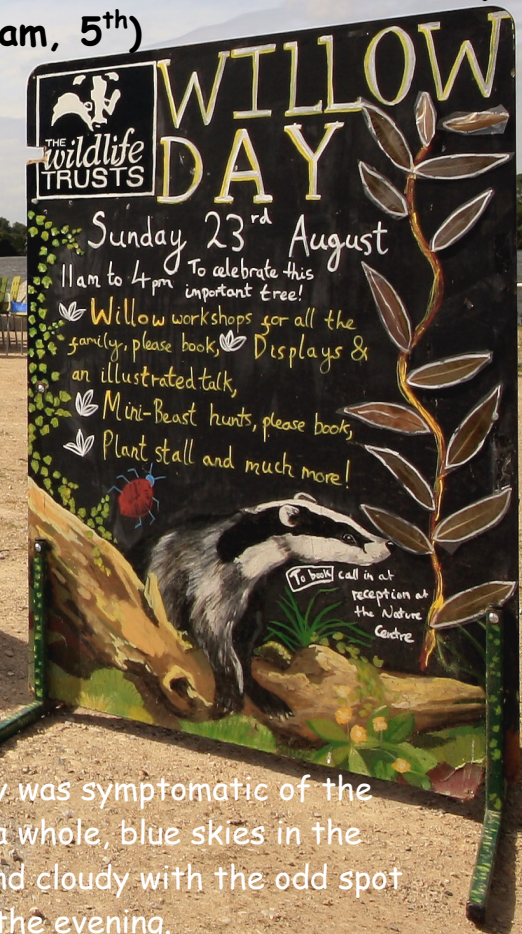 am, 5th)
THE
wildlife
TRUSTS
WILLOW
DAY
Sunday 23rd August
11am to 4pm To celebrate this
important tree!
Willow workshops for all the
family, please book, Displays &
an illustrated talk,
Mini-Beast hunts, please book,
Plant stall and much more!
To book call in at
reception at
the Nature
Centre
was symptomatic of the
a whole, blue skies in the
cloudy with the odd spot
the evening.